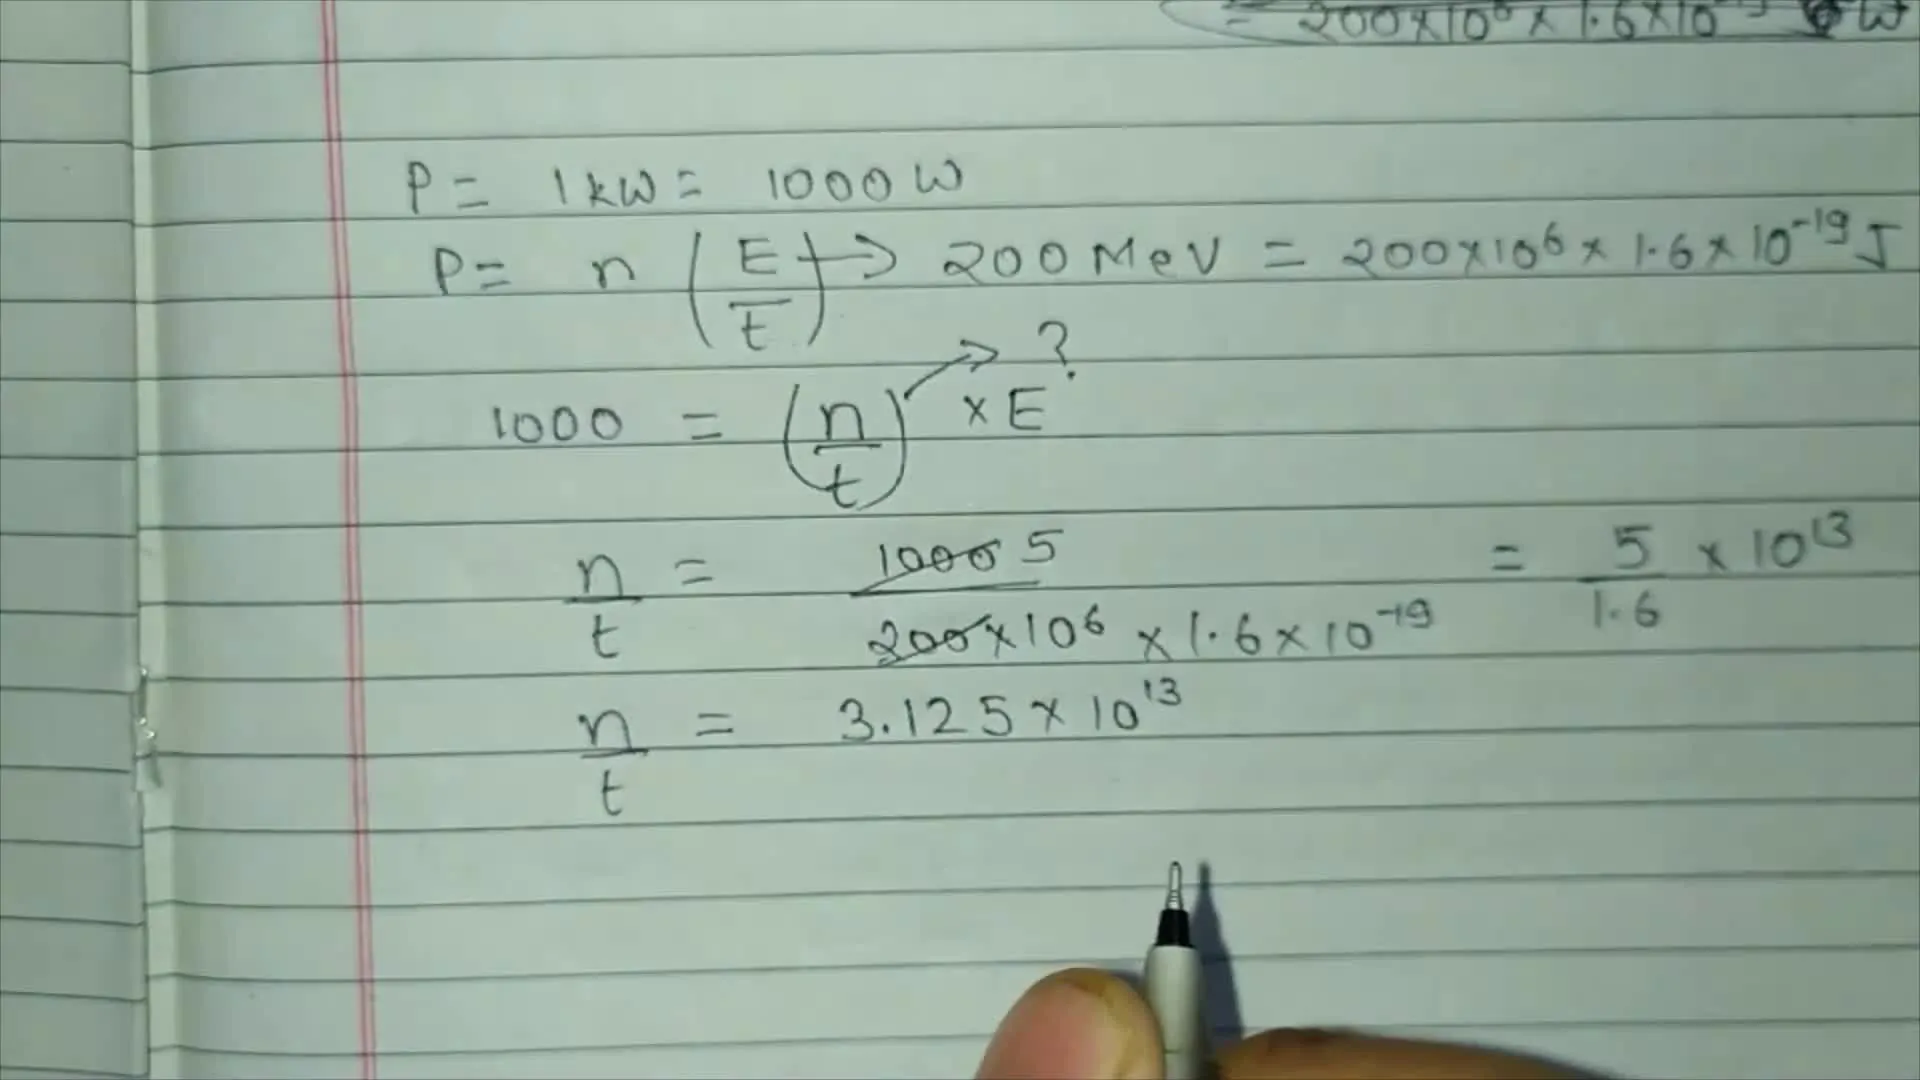 = 200×10⁶ × 1.6×10 W
P = 1 kW = 1000 W
P = n (E/t) → 200 MeV = 200×10⁶ × 1.6 × 10⁻¹⁹ J
1000 = (n/t) × E → ?
n/t = 1000 5 / 200×10⁶ × 1.6×10⁻¹⁹ = 5/1.6 × 10¹³
n/t = 3.125 × 10¹³